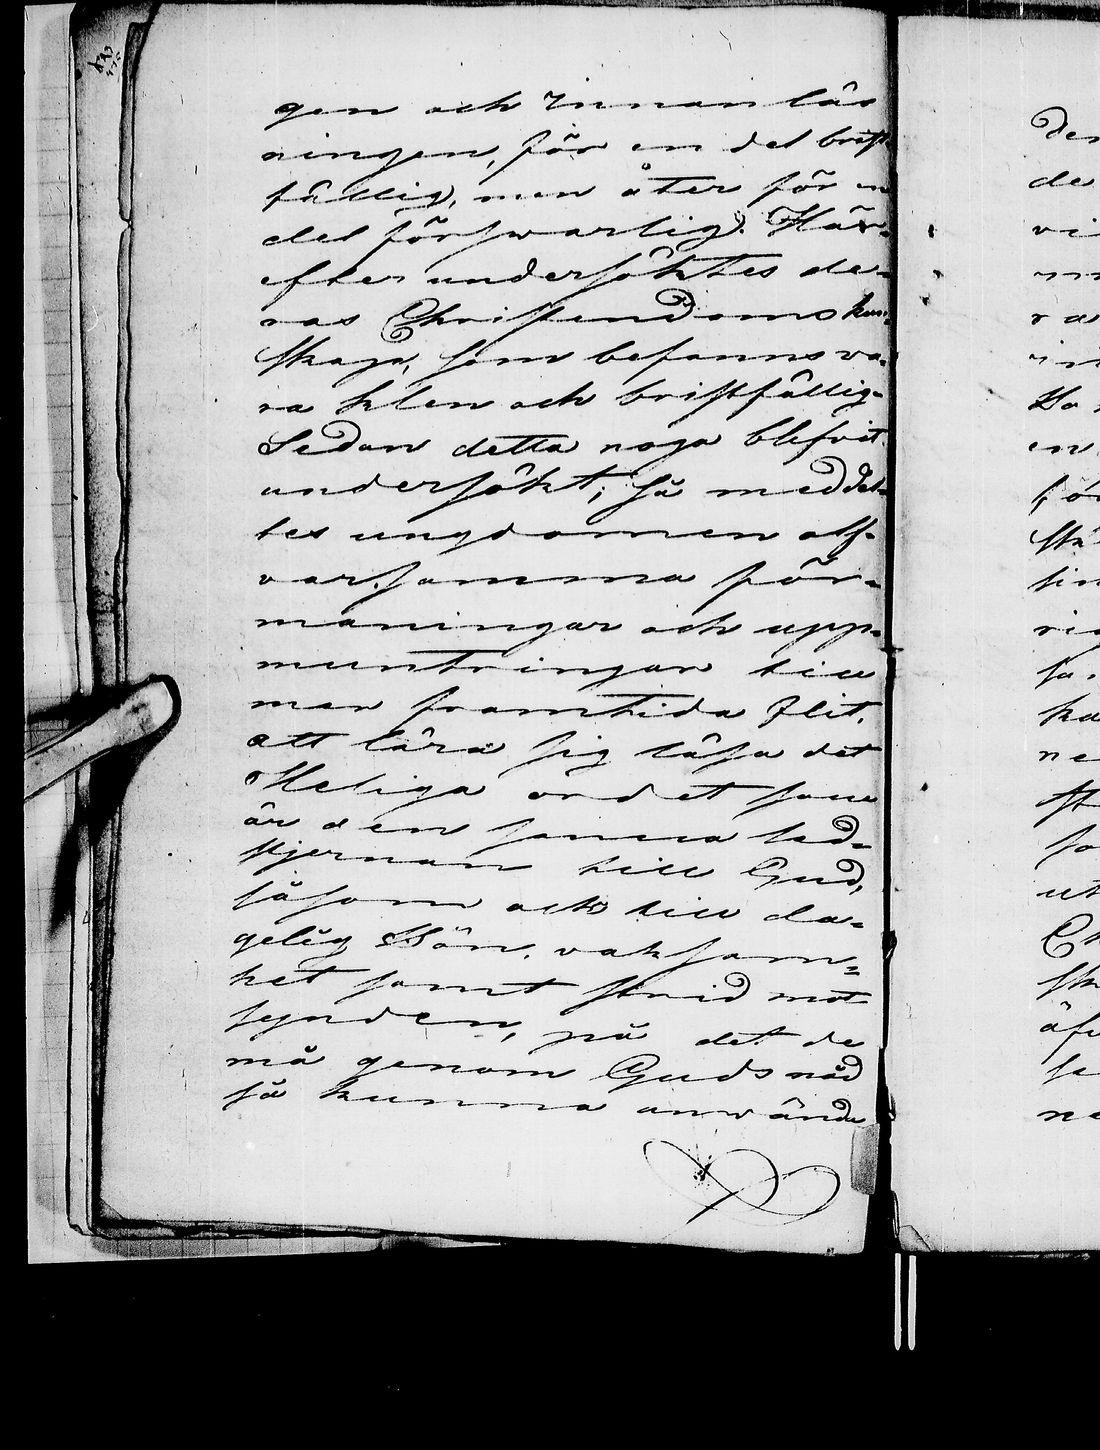 gen och Innan läs
ningen, för en del brist-
fällig, men åter för en
del förswarlig. Här-
efter undersöktes de-
ras Christendoms kun-
skaper, som befanns va-
ra klen och bristfällig.
Sedan detta noga blefvit
undersökt, så meddel-
tes ungdomen alf-
varsamma för-
maningar och upp-
muntringar till
mer framtida flit,
att lära sig läsa det
Heliga ordet som
är den sanna led-
stjernan till Gud,
såsom ock till da-
gelig Bön, vaksam-
het samt strid mot
synden, på det de
må genom Guds nåd
så kunna anwända